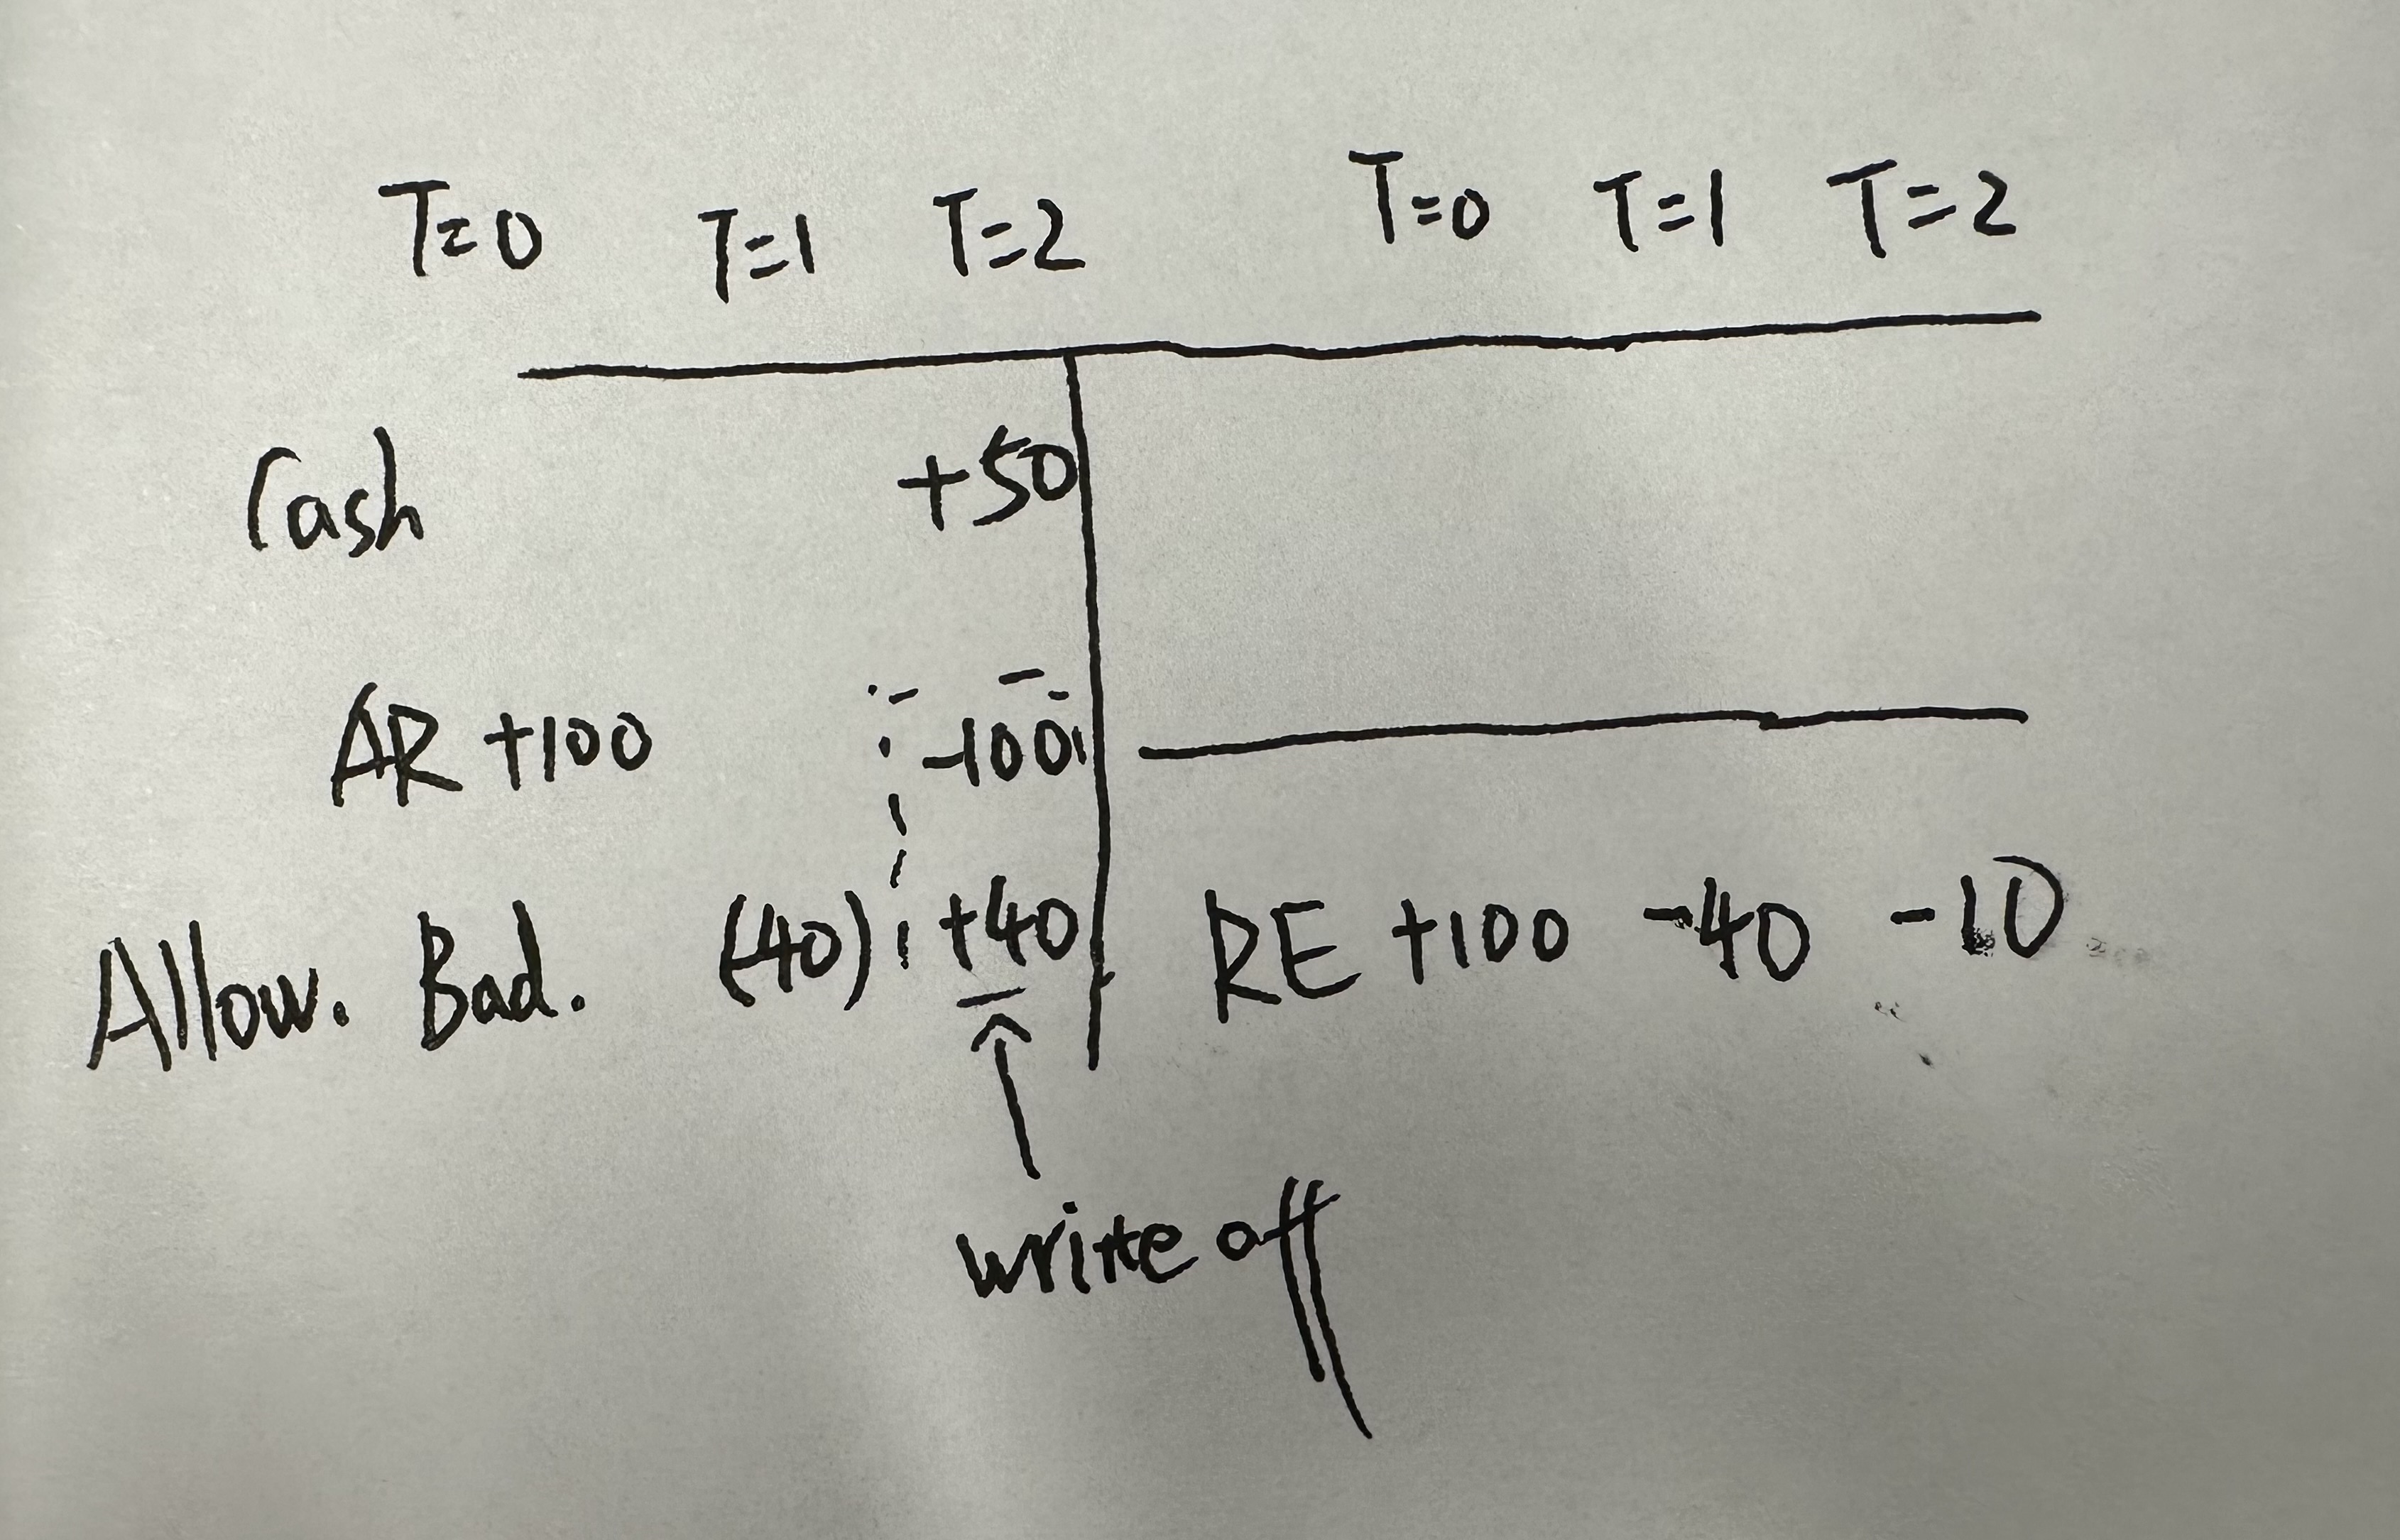 T=0 T=1 T=2 T=0 T=1 T=2
Cash +50
AR +100 -100
Allow. Bad. (40) +40 RE +100 -40 -10
write off